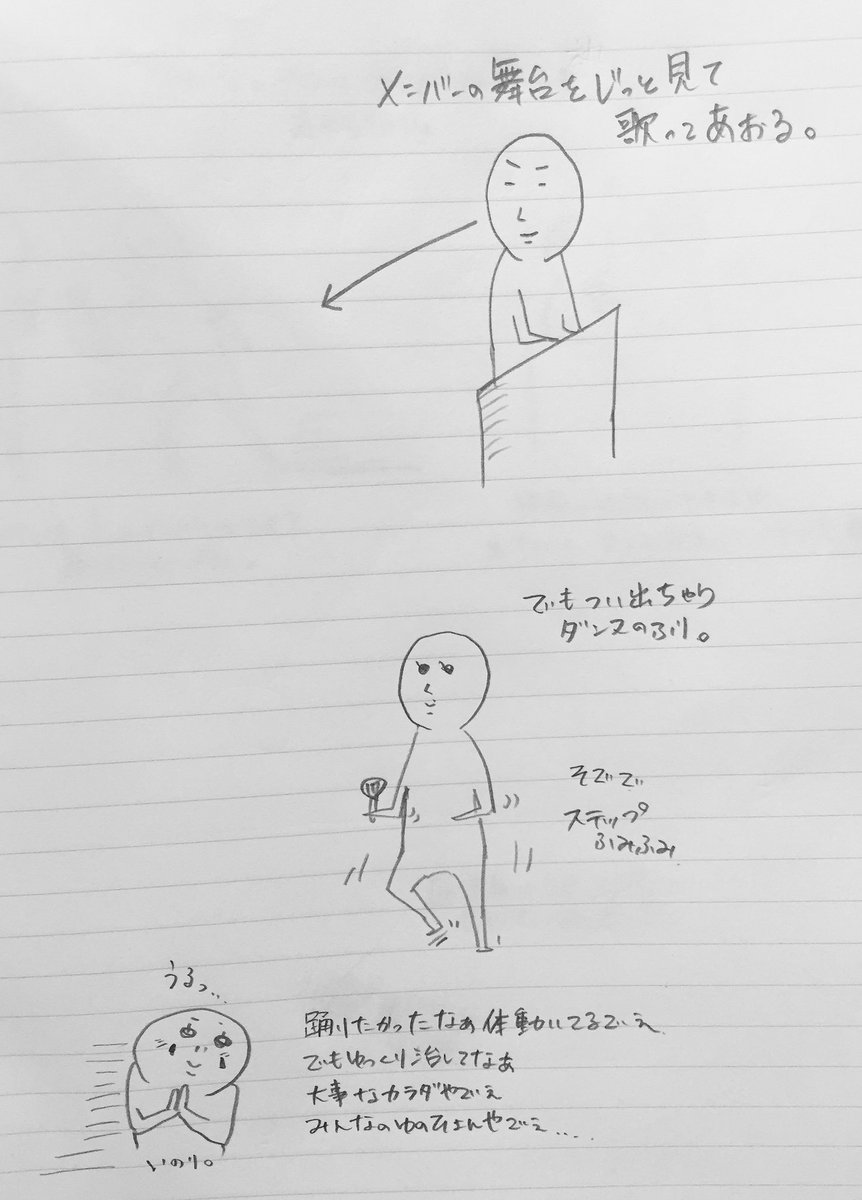 メンバーの舞台をじっと見て
歌ってあおる。
でもつい出ちゃう
ダンスのふり。
そでで
ステップ
ふみふみ
うるっ...
踊りたかったなぁ体動いてるでぇ
でもゆっくり治してなぁ
大事なカラダやでぇ
みんなのゆのひょんやでぇ....
いのり。